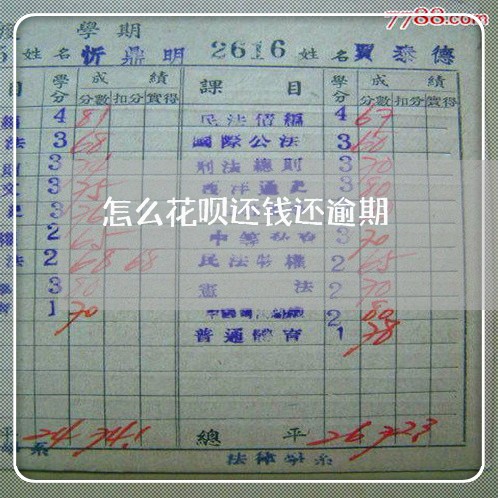 7788.com
學期
姓名 忻鼎明 2616 姓名 賈泰德
目 學分 成績 課目 學分 成績
分數 扣分 實得 分數 扣分 實得
4 81 民法債編 4 67
法 3 68 國際公法 3 60
3 刑法總則 3 70
文 3 75 西洋通史 3 80
怎么花呗还钱还逾期
2 65 3 70
法 2 68 68 民法物權 2 65
3 80 憲法 2 70
1 70 2 80
普通體育 1 78
平 24 74.1 總平 26 72.3
系 法律學系